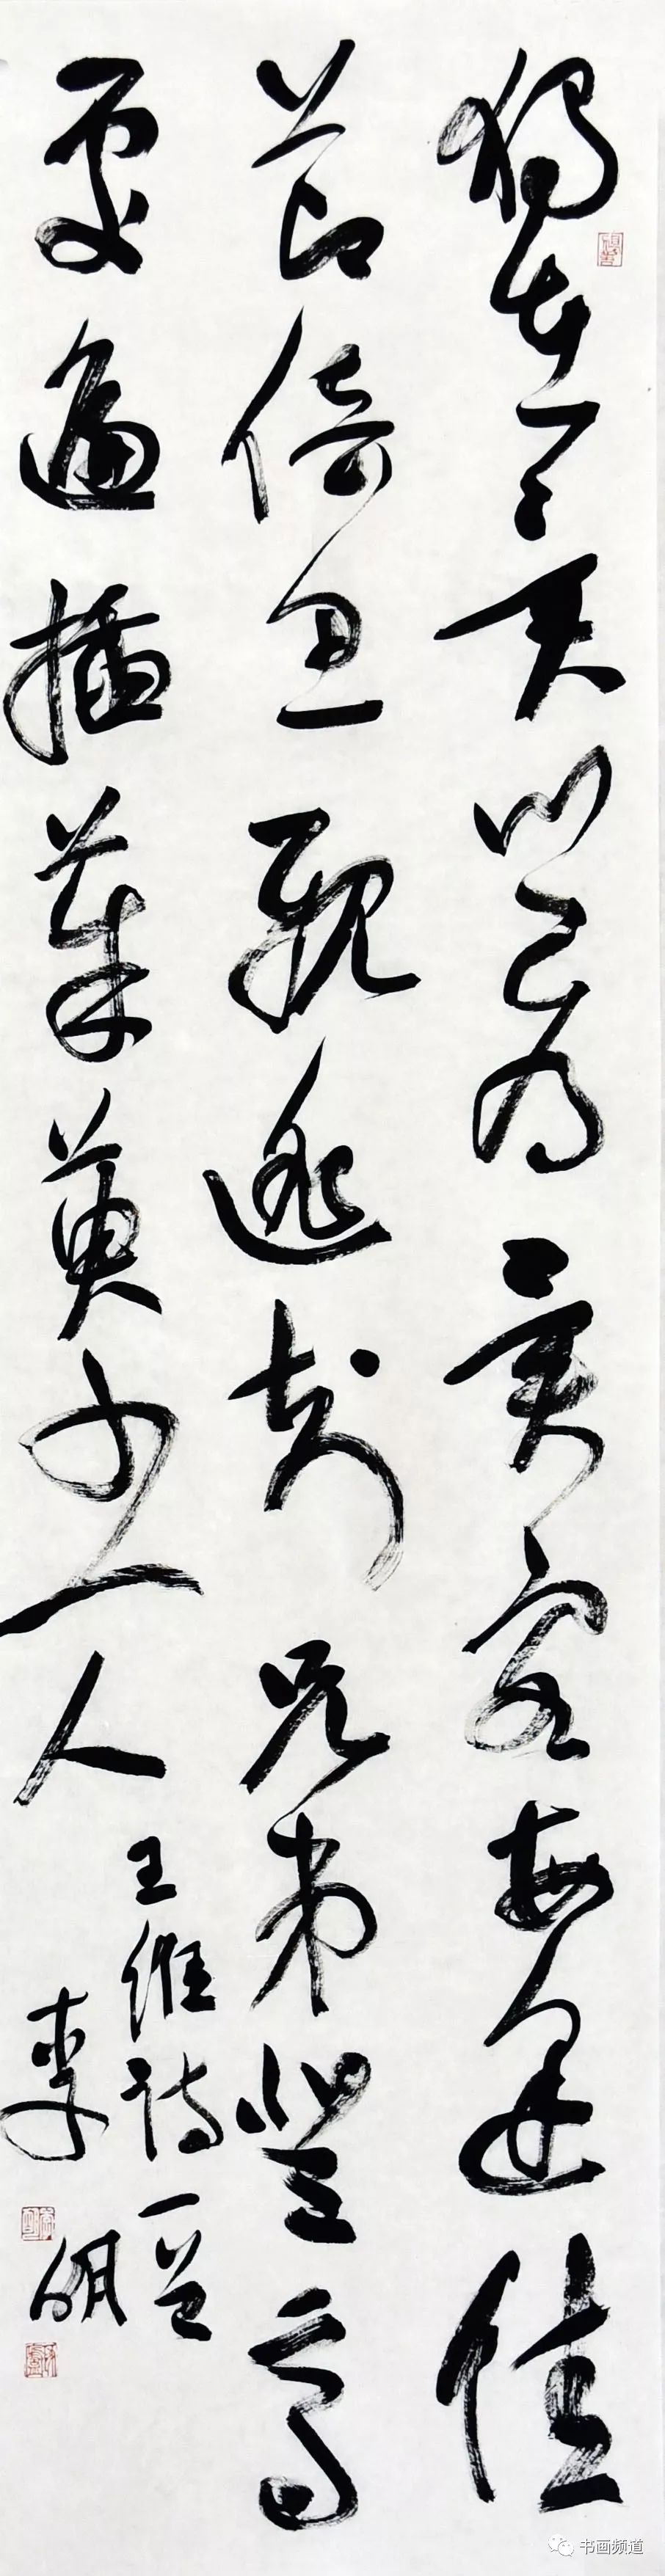 獨在異鄉為異客每逢佳
節倍思親遙知兄弟登高
處遍插茱萸少一人
王維詩一首
李明
书画频道